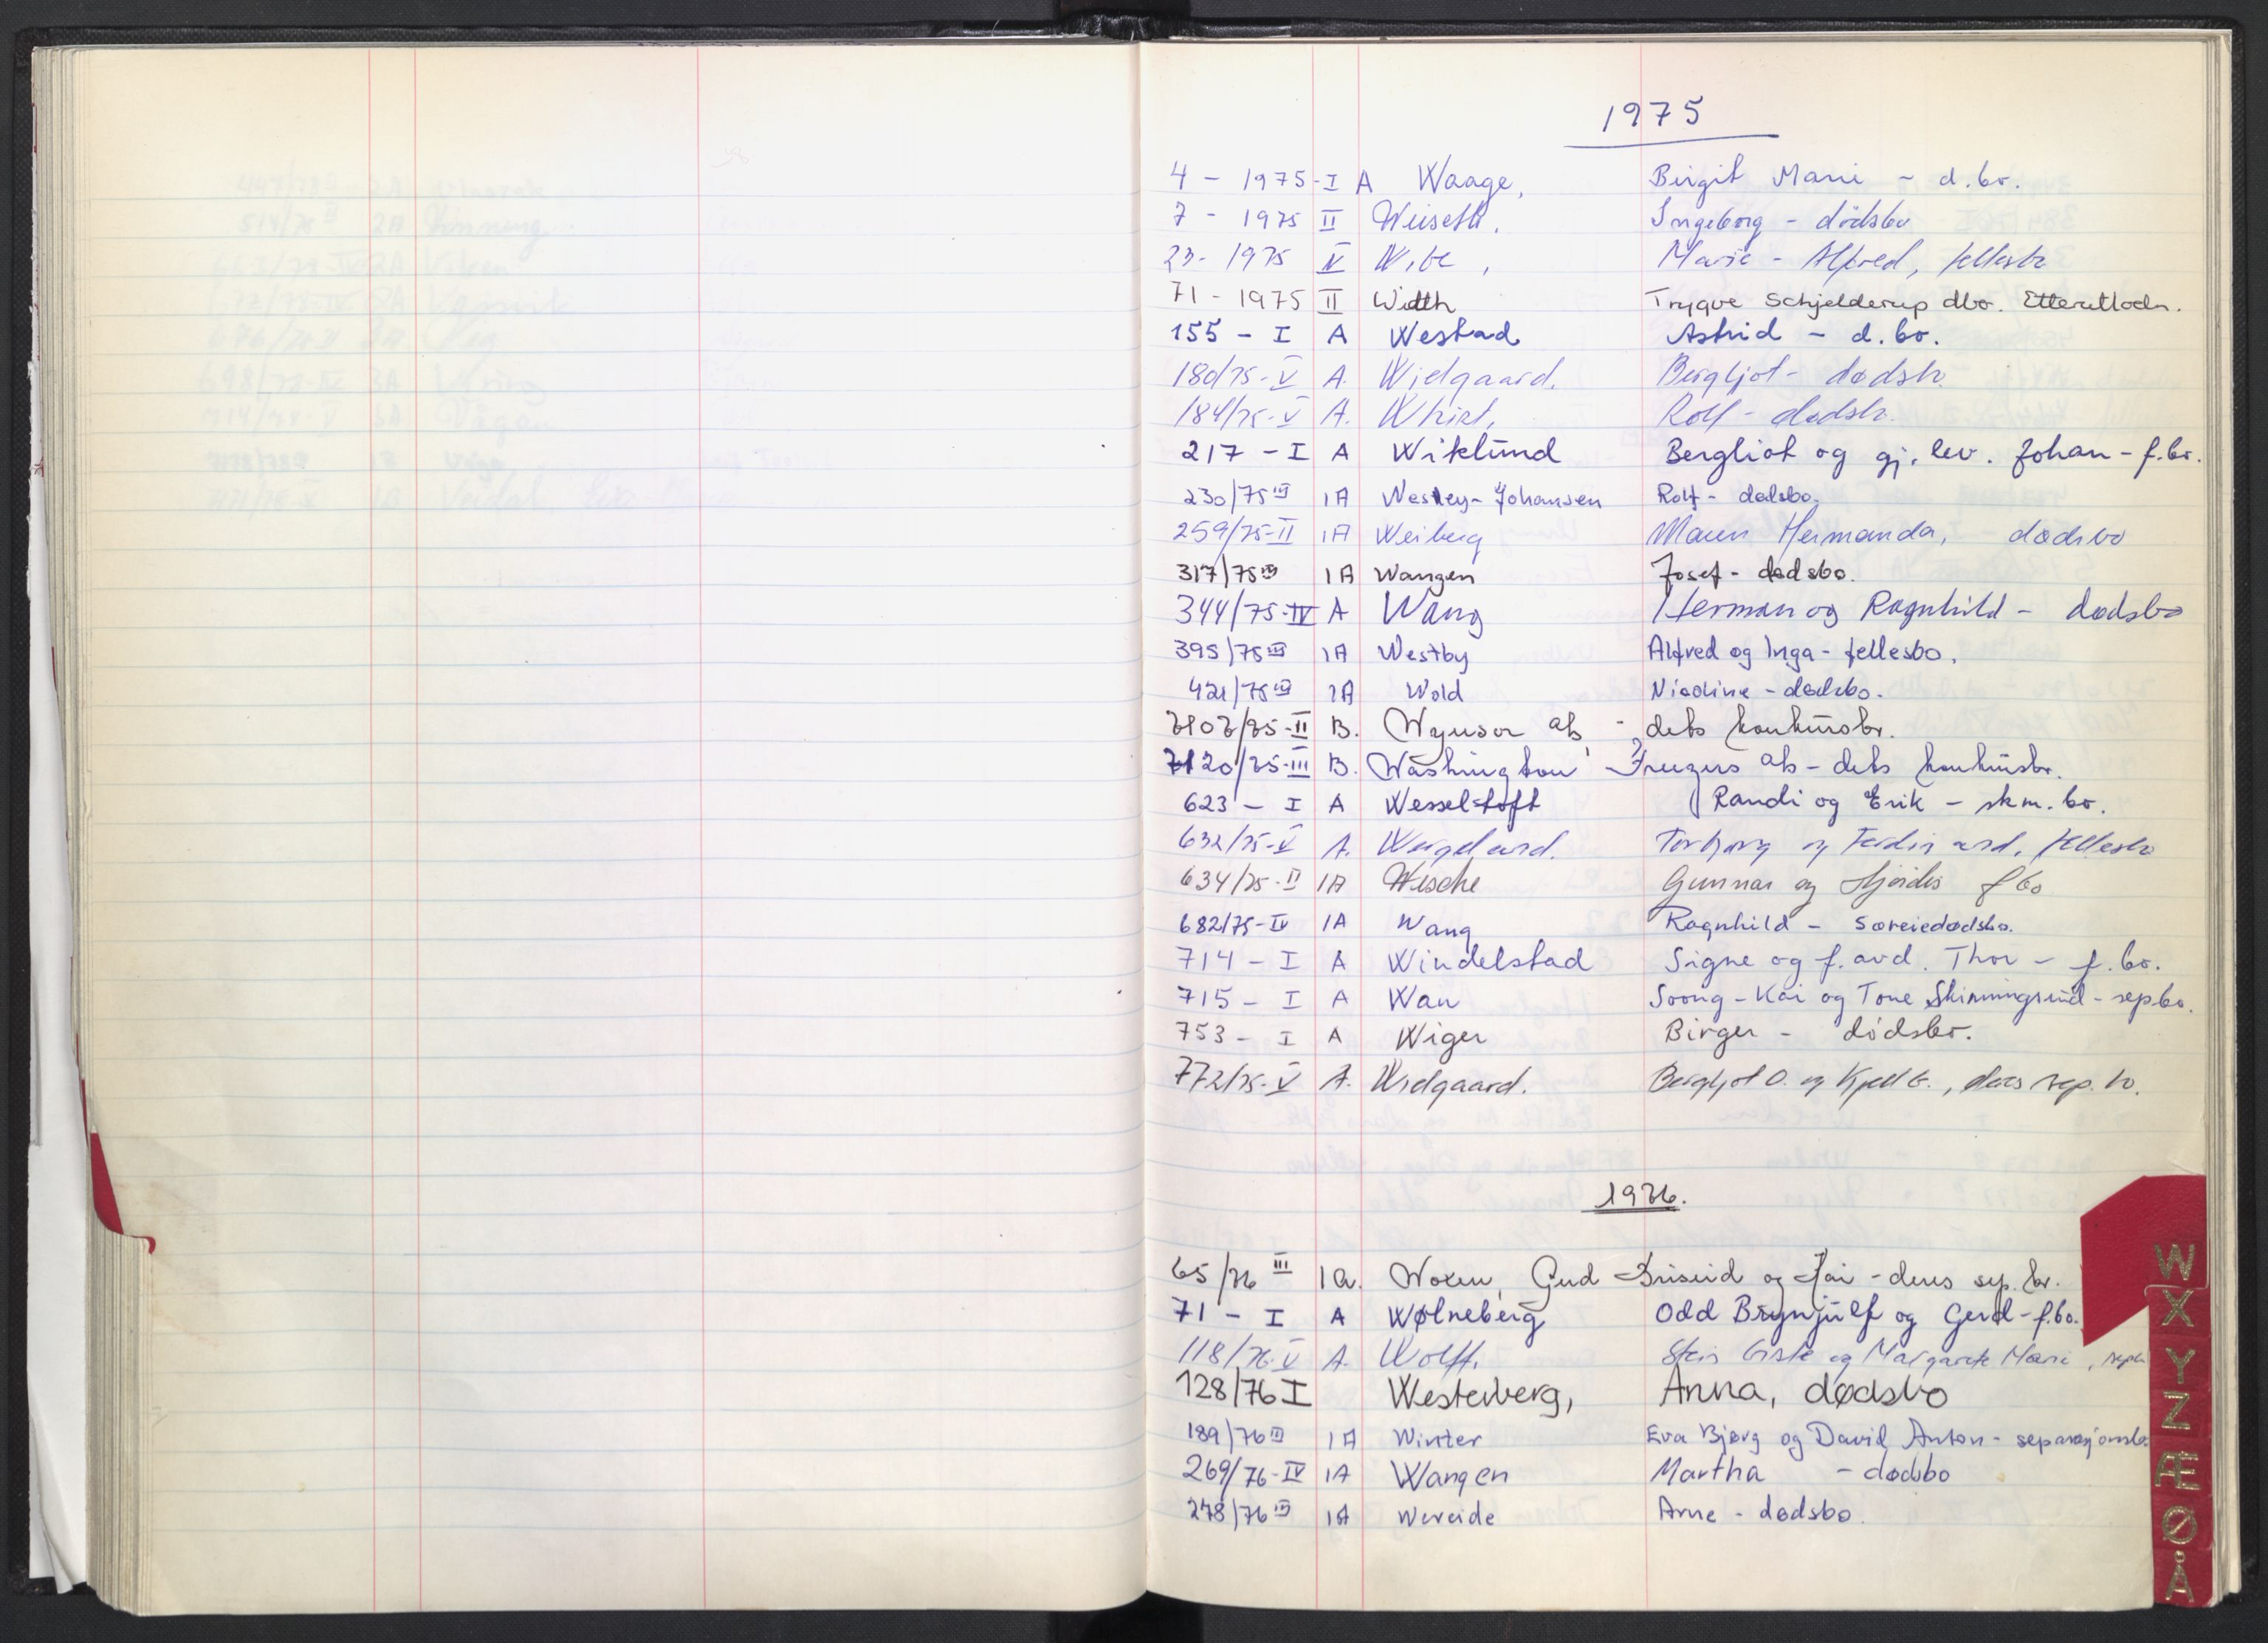 1975
4 - 1975-I A Waage, Birgit Marie - d.bo.
7 - 1975 II Weiseth, Ingeborg - dødsbo
23- 1975 V Wibe, Marie - Alfred, fellesbo
71 - 1975 II Width Trygve Schjelderup dbo.
155 - I A Westad Astrid - d.bo.
180/75-V A. Widgaard. Bergljot - dødsb.
184/75-V A. Rolf - dødsb.
217 - I A Wiklund Bergliot og gj. lev. Johan - f.bo.
230/75 III 1A Westey-Johansen Rolf - dødsbo.
259/75-II 1A Weiberg Maren Hermanda, dødsbo
317/75 III 1A Wangen Josef - dødsbo.
344/75-IV A Wang Herman og Ragnhild - dødsbo
395/75 III 1A Westby Alfred og Inga - fellesbo.
421/75 III 1A Wold Nicoline - dødsbo.
75-II B. as - dets konkursbo.
7120/75-III B. Washington as - dets konkursbo.
623 - I A Wesseltoft Randi og Erik - skm.bo.
632/75-V A. Weigelard. Torbjørg og Ferdinand, fellesbo
634/75-II 1A Wesche Gunnar og Hjørdis f bo
682/75-IV 1A Wang Ragnhild - særeiedødsbo.
714 - I A Windelstad Signe og f.avd. Thor - f.bo.
715 - I A Wan Soong-Kai og Tone Skinningsrud - sepbo.
753 - I A Wiger Birger - dødsbo.
772/75-V A. Widgaard. Bergljot O. og Kjell G., deres sep.bo.
1976.
65/76 III 1a. Woxen, Gud og Kai - deres sep.bo.
71 - I A Wølneberg Odd Brynjulf og Gerd - f.bo.
118/76-V A. Wolff. Stein og Margarete Marie, sepb
128/76 I Westerberg, Anna, dødsbo
189/76 III 1A Winter Eva Bjørg og David Anton - separasjonsbo.
269/76-IV 1A Wangen Martha - dødsbo
278/76 III 1A Wereide Arne - dødsbo.
W
X
Y
Z
Æ
Ø
Å